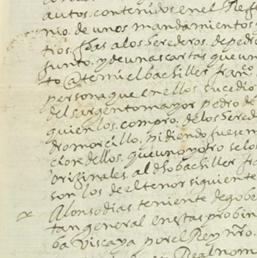 autos contenidos en el Res
nio. de unos mandamientos
tros. fhas a los Herederos. de pedro
funto. y de unas cartas que un
to Artemi el bachiller franco
persona que en ellos. sucedio
del sargento mayor pedro de
quien los. compro. de los Hered
dro morcillo. Pidiendo fuesen
cior dellos. que uno y otro se lo
originales. al dho bachiller fra
son los de el tenor siguiente
Alonso dias. teniente de gober
tan general en estas probin
ba Viscaya por el Rey nro.
Real nom